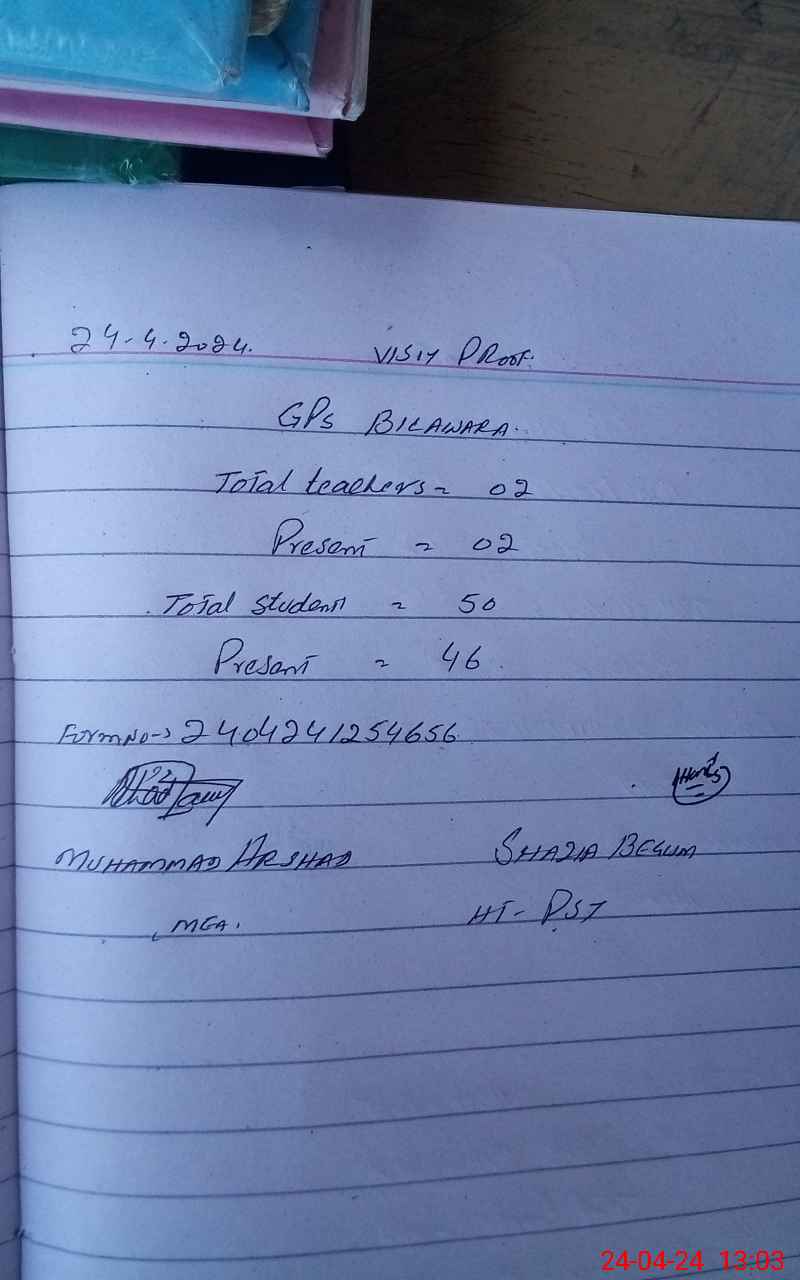 24-4-2024. VISIT PROOF.
GPS BILAWARA.
Total teachers = 02
Present = 02
Total student = 50
Present = 46
Form No-> 2404241254656
MUHAMMAD ARSHAD SHAZIA BEGUM
MEA. HT- PST
24-04-24 13:03